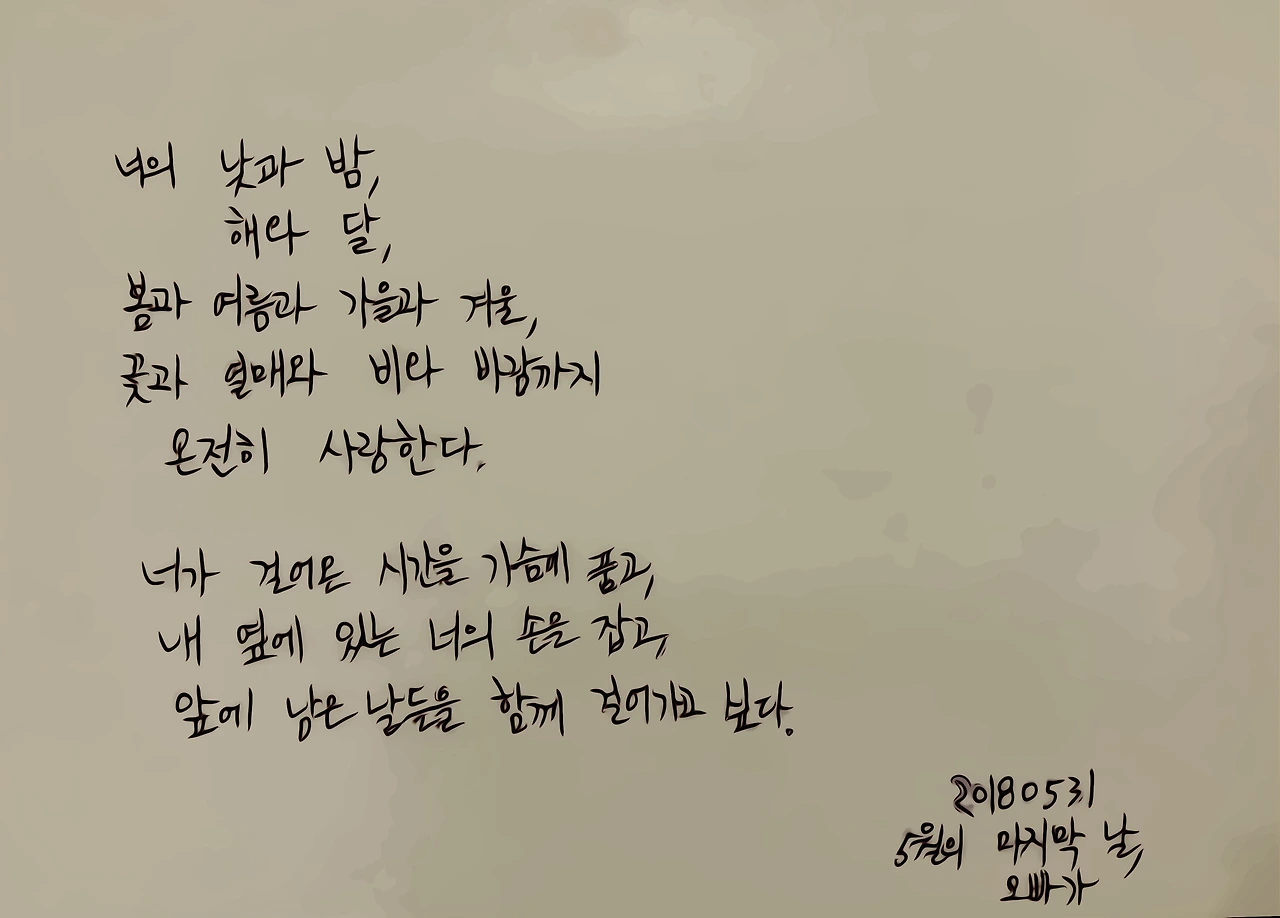 너의 낮과 밤,
해와 달,
봄과 여름과 가을과 겨울,
꽃과 열매와 비와 바람까지
온전히 사랑한다.
너가 걸어온 시간을 가슴에 품고,
내 옆에 있는 너의 손을 잡고,
앞에 남은 날들을 함께 걸어가고 보다.
20180531
5월의 마지막 날,
오빠가